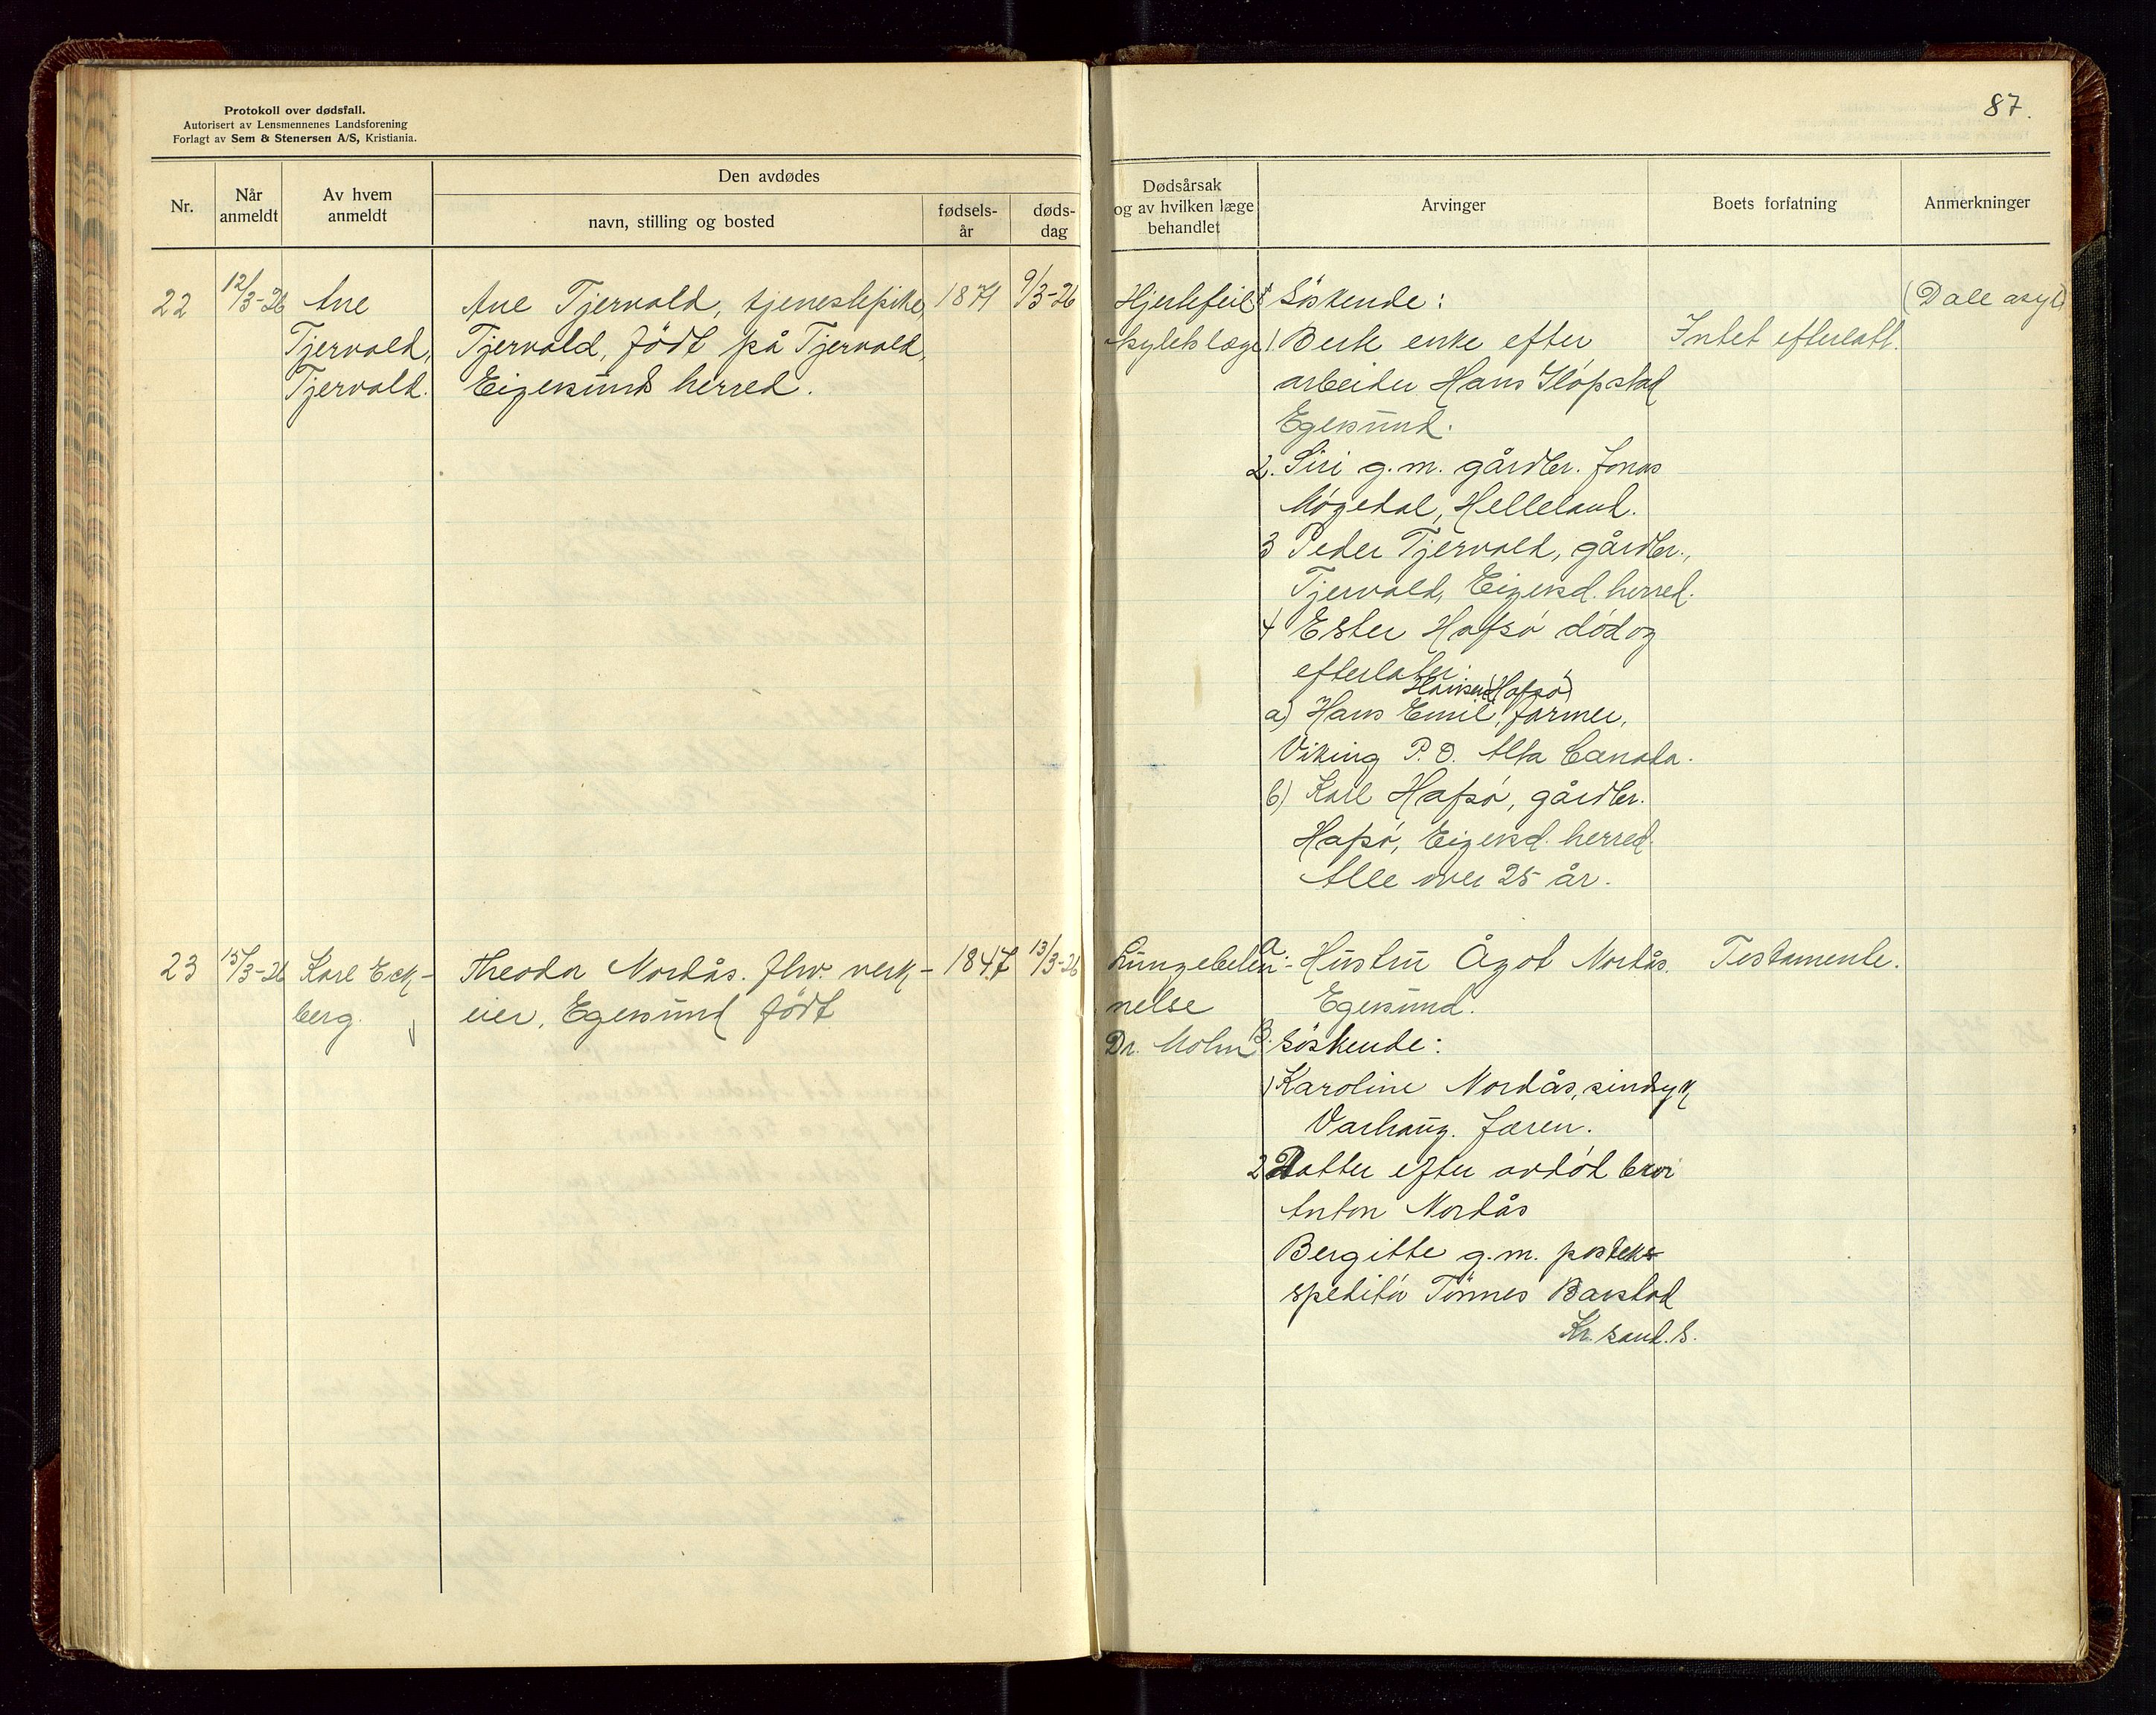 Protokoll over dødsfall.
Autorisert av Lensmennenes Landsforening
Forlagt av Sem & Stenersen A/S, Kristiania.
87.
Nr.
Når anmeldt
Av hvem anmeldt
Den avdødes
navn, stilling og bosted
fødsels-år
døds-dag
Dødsårsak og av hvilken læge behandlet
Arvinger
Boets forfatning
Anmerkninger
22
12/3-26
Ane
Tjervold,
Tjervold.
Ane Tjervold, tjenestepike,
Tjervold, født på Tjervold,
Eigersunds herred.
1871
9/3-26
Hjertefeil
Asylets læge
Søskende:
1) Berte enke efter
arbeider Hans Sløpstad
Egersund.
2. Siri g.m. gårdbr. Jonas
Møgedal, Helleland.
3 Peder Tjervold, gårdbr.,
Tjervold, Eigersd. herred.
4 Ester Hafsø død og
efterlater:
Hansen (Hafsø)
a) Hans Emil, farmer,
Viking P.O. Alta Canada.
b) Karl Hafsø, gårdbr.
Hafsø, Eigersd. herred.
Alle over 25 år.
Intet efterlatt.
(Dale asyl)
23
15/3-26
Karl Eck-
berg.
Theodor Nordås. fhv. verk-
eier, Egersund født
1847
13/3-26
Lungebeten-
nelse
Dr. Mohn
A. Hustru Ågot Nordås.
Egersund.
B. Søskende:
1) Karoline Nordås, sindsyk
Varhaug. Jæren.
2 Datter efter avdød bror
Anton Nordås
Bergitte g.m. posteks-
speditør Tønnes Barstad
Kr. sand. S.
Testamente.